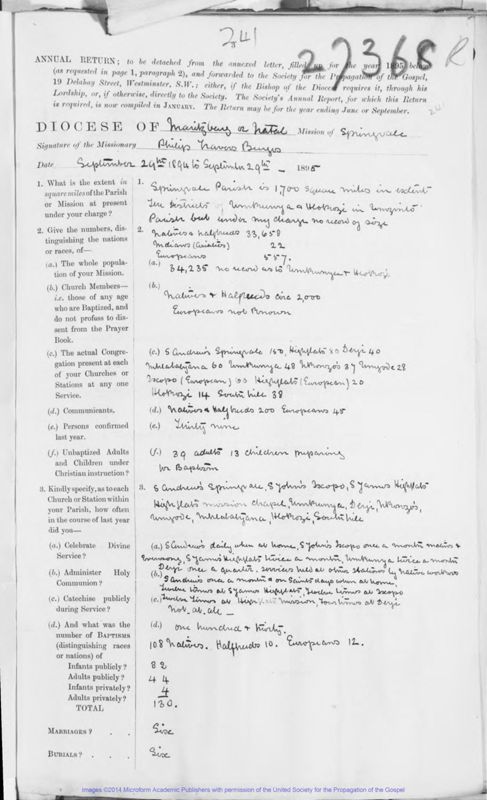 241
27368 R
ANNUAL RETURN; to be detached from the annexed letter, filled up for the year 1895 below
(as requested in page 1, paragraph 2), and forwarded to the Society for the Propagation of the Gospel,
19 Delahay Street, Westminster, S.W.; either, if the Bishop of the Diocese requires it, through his
Lordship, or, if otherwise, directly to the Society. The Society's Annual Report, for which this Return
is required, is now compiled in JANUARY. The Return may be for the year ending June or September.
241
DIOCESE OF Maritzburg or Natal Mission of Springvale
Signature of the Missionary Philip Travers Burges
Date September 29th 1894 to September 29th 1895
1. What is the extent in
square miles of the Parish
or Mission at present
under your charge?
1. Springvale Parish is 1700 square miles in extent
The districts of Umkunya & Hlokozi in
Parish but under my charge no record of size
2. Give the numbers, dis-
tinguishing the nations
or races, of—
2. Natives & halfbreeds 33,658
Indians (Asiatics) 22
Europeans 557.
(a.) The whole popula-
tion of your Mission.
(a.) 34,235 no record as to Umkunya & Hlokozi
(b.) Church Members—
i.e. those of any age
who are Baptized, and
do not profess to dis-
sent from the Prayer
Book.
(b.)
Natives & Halfbreeds circ 2,000
Europeans not known
(c.) The actual Congre-
gation present at each
of your Churches or
Stations at any one
Service.
(c.) S Andrew's Springvale 150, Highflats 80 Deyi 40
60 Umkunya 48 Nkonzos 37 28
Ixopo (European) Highflats (European) 20
Hlokozi 14 South hill 38
(d.) Communicants.
(d.) Natives & Halfbreeds 200 Europeans 45
(e.) Persons confirmed
last year.
(e.) Thirty nine
(f.) Unbaptized Adults
and Children under
Christian instruction?
(f.) 39 adults 13 children preparing
for Baptism
3. Kindly specify, as to each
Church or Station within
your Parish, how often
in the course of last year
did you—
3. S Andrews Springvale, S John's Ixopo, S James Highflats
High flats mission chapel, Umkunya, Deyi, Nkonzos,
Hlokozi, South hill
(a.) Celebrate Divine
Service?
(a.) S Andrews daily when at home, S John's Ixopo once a month matins &
Evensong, S James Highflats twice a month, Umkunya twice a month
Deyi once a quarter. Services held at other stations by native workers
(b.) Administer Holy
Communion?
(b.) S Andrews once a month & on Saints days when at home,
Twelve times at S James Highflats, Twelve times at Ixopo
Twelve times at Highflats mission, Four times at Deyi
(c.) Catechise publicly
during Service?
(c.) Not at all —
(d.) And what was the
number of BAPTISMS
(distinguishing races
or nations) of
(d.) One hundred & thirty.
108 Natives. Halfbreeds 10. Europeans 12.
Infants publicly? 82
Adults publicly? 44
Infants privately? 4
Adults privately?
TOTAL 130.
MARRIAGES? . . Six
BURIALS? . . Six
Images ©2014 Microform Academic Publishers with permission of the United Society for the Propagation of the Gospel